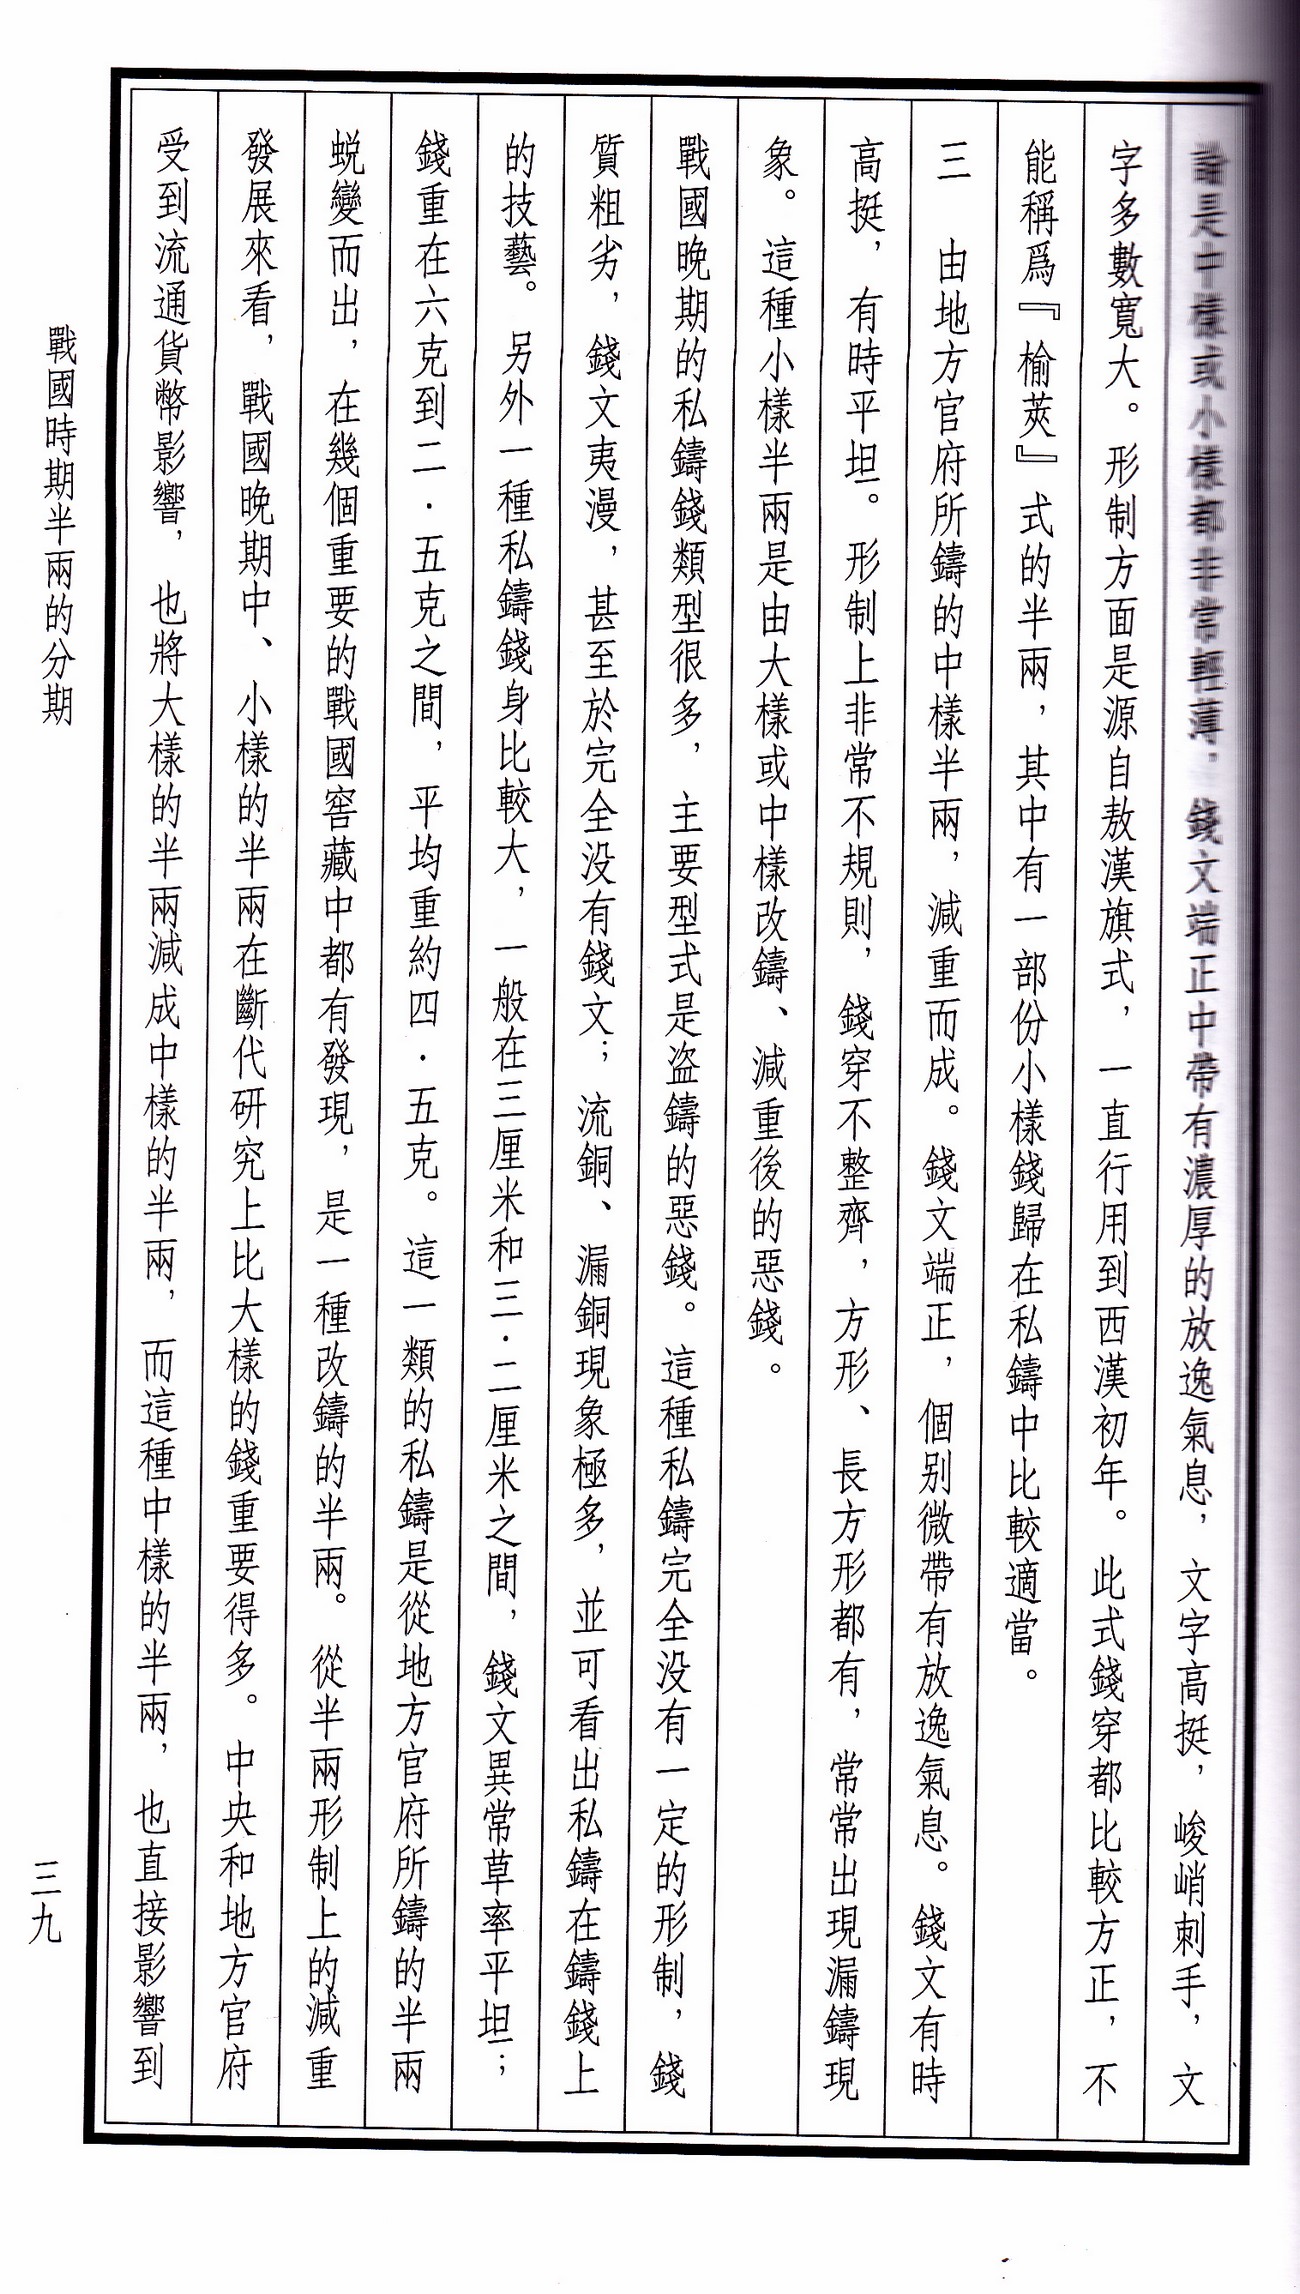 論是中樣或小樣都非常輕薄，錢文端正中帶有濃厚的放逸氣息，文字高挺，峻峭刺手，文
字多數寬大。形制方面是源自敖漢旗式，一直行用到西漢初年。此式錢穿都比較方正，不
能稱爲『榆莢』式的半兩，其中有一部份小樣錢歸在私鑄中比較適當。
三　由地方官府所鑄的中樣半兩，減重而成。錢文端正，個别微帶有放逸氣息。錢文有時
高挺，有時平坦。形制上非常不規則，錢穿不整齊，方形、長方形都有，常常出現漏鑄現
象。這種小樣半兩是由大樣或中樣改鑄、減重後的惡錢。
戰國晚期的私鑄錢類型很多，主要型式是盗鑄的惡錢。這種私鑄完全没有一定的形制，錢
質粗劣，錢文夷漫，甚至於完全没有錢文；流銅、漏銅現象極多，並可看出私鑄在鑄錢上
的技藝。另外一種私鑄錢身比較大，一般在三厘米和三．二厘米之間，錢文異常草率平坦；
錢重在六克到二．五克之間，平均重約四．五克。這一類的私鑄是從地方官府所鑄的半兩
蜕變而出，在幾個重要的戰國窖藏中都有發現，是一種改鑄的半兩。從半兩形制上的減重
發展來看，戰國晚期中、小樣的半兩在斷代研究上比大樣的錢重要得多。中央和地方官府
受到流通貨幣影響，也將大樣的半兩減成中樣的半兩，而這種中樣的半兩，也直接影響到
戰國時期半兩的分期
三九